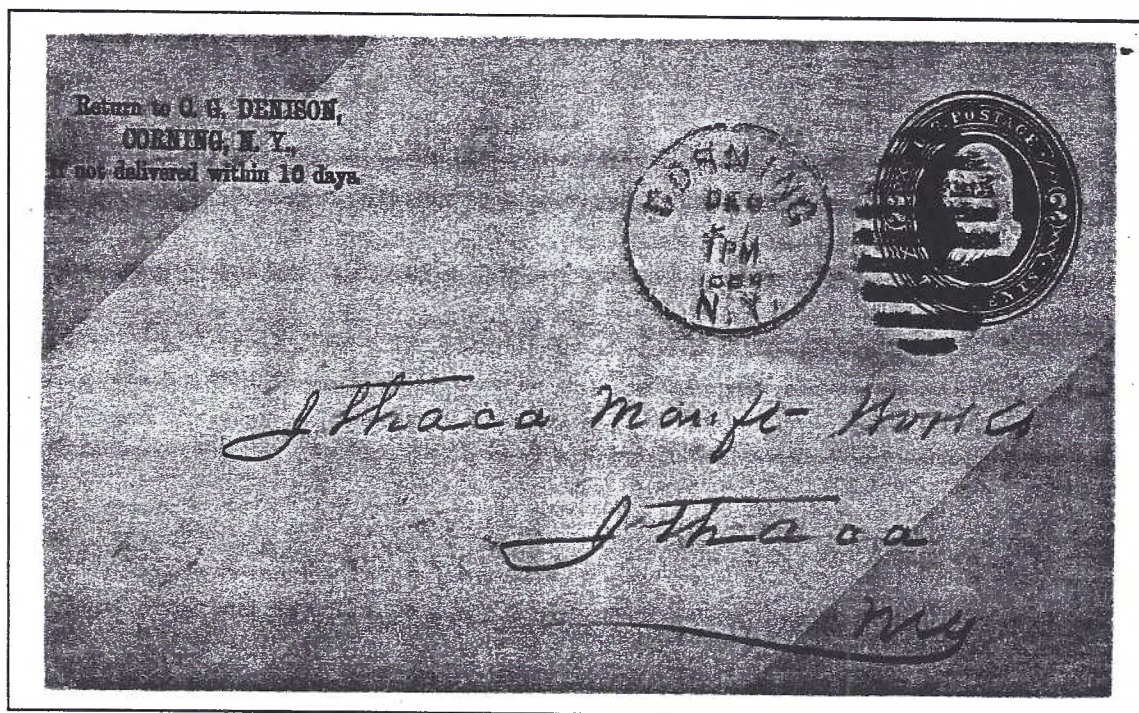 Return to C. G. DENISON,
CORNING, N. Y.,
If not delivered within 10 days.
CORNING
DEC
1 PM
N.Y.
POSTAGE
Ithaca Manft- Works
Ithaca
NY